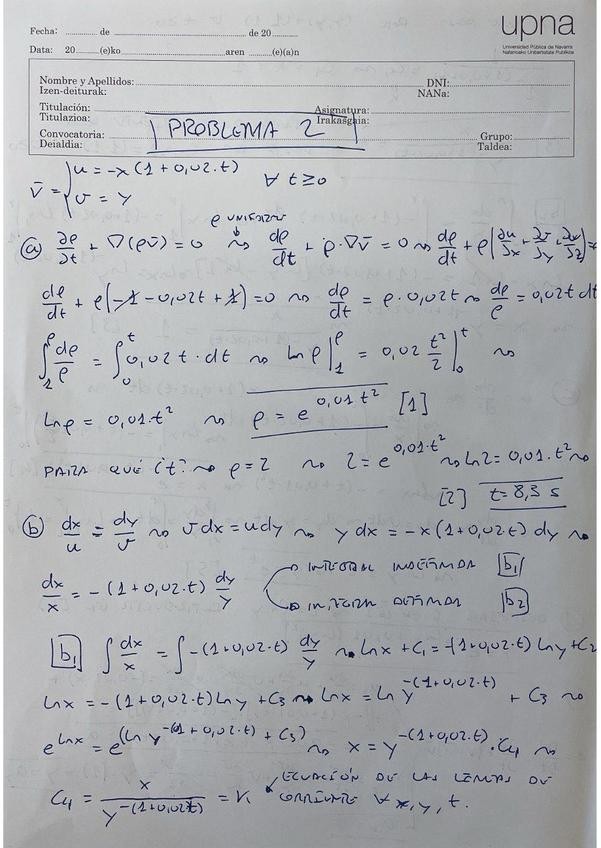 Fecha: ........... de .................................................. de 20 .........
Data: 20 .........(e)ko .............................aren .........(e)(a)n
upna
Universidad Pública de Navarra
Nafarroako Unibertsitate Publikoa
Nombre y Apellidos: DNI:
Izen-deiturak: NANa:
Titulación: Asignatura:
Titulazioa: Irakasgaia:
PROBLEMA 2
Convocatoria: Grupo:
Deialdia: Taldea:
v̄ = { u = -x(1+0,02.t) ∀ t≥0
v = y
ρ UNIFORME
a) ∂ρ/∂t + ∇(ρv̄) = 0 ⇝ dρ/dt + ρ·∇v̄ = 0 ⇝ dρ/dt + ρ(∂u/∂x + ∂v/∂y + ∂w/∂z) =
dρ/dt + ρ(-1 - 0,02t + 1) = 0 ⇝ dρ/dt = ρ·0,02t ⇝ dρ/ρ = 0,02t dt
∫₁^ρ dρ/ρ = ∫₀^t 0,02t·dt ⇝ ln ρ |₁^ρ = 0,02 t²/2 |₀^t ⇝
Lnρ = 0,01·t² ⇝ ρ = e^(0,01t²) [1]
PARA QUÉ ¿t? ⇝ ρ=2 ⇝ 2 = e^(0,01·t²) ⇝ ln2 = 0,01.t² ⇝
[2] t = 8,3 s
b) dx/u = dy/v ⇝ v dx = u dy ⇝ y dx = -x(1+0,02t) dy ⇝
dx/x = -(1+0,02.t) dy/y → INTEGRAL INDEFINIDA b₁
→ INTEGRAL DEFINIDA b₂
b₁ ∫ dx/x = ∫ -(1+0,02.t) dy/y ⇝ lnx + C₁ = -(1+0,02.t) ln y + C₂
lnx = -(1+0,02.t) ln y + C₃ ⇝ lnx = ln y^(-(1+0,02.t)) + C₃ ⇝
e^(lnx) = e^(ln y^(-(1+0,02.t)) + C₃) ⇝ x = y^(-(1+0,02.t)) · C₄ ⇝
C₄ = x / y^(-(1+0,02t)) = K ECUACIÓN DE LAS LÍNEAS DE
CORRIENTE ∀ x, y, t.